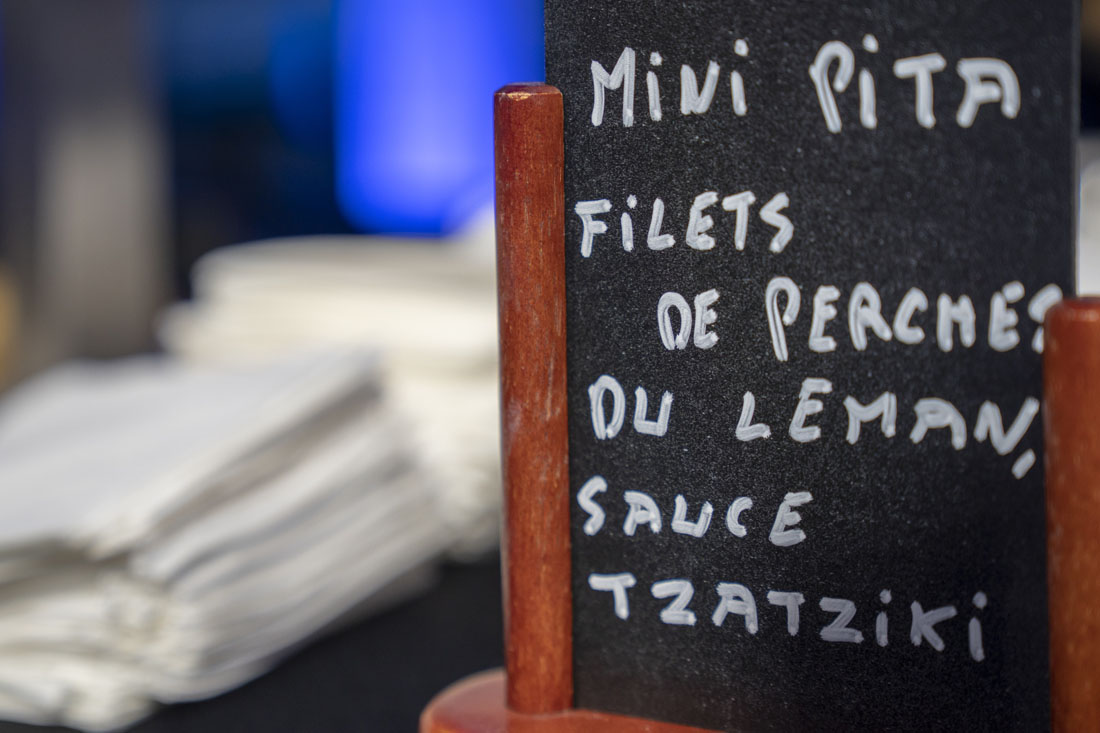 MiNi PiTA
FiLETS
DE PERCHES
DU LEMAN,
SAUCE
TZATZiKi